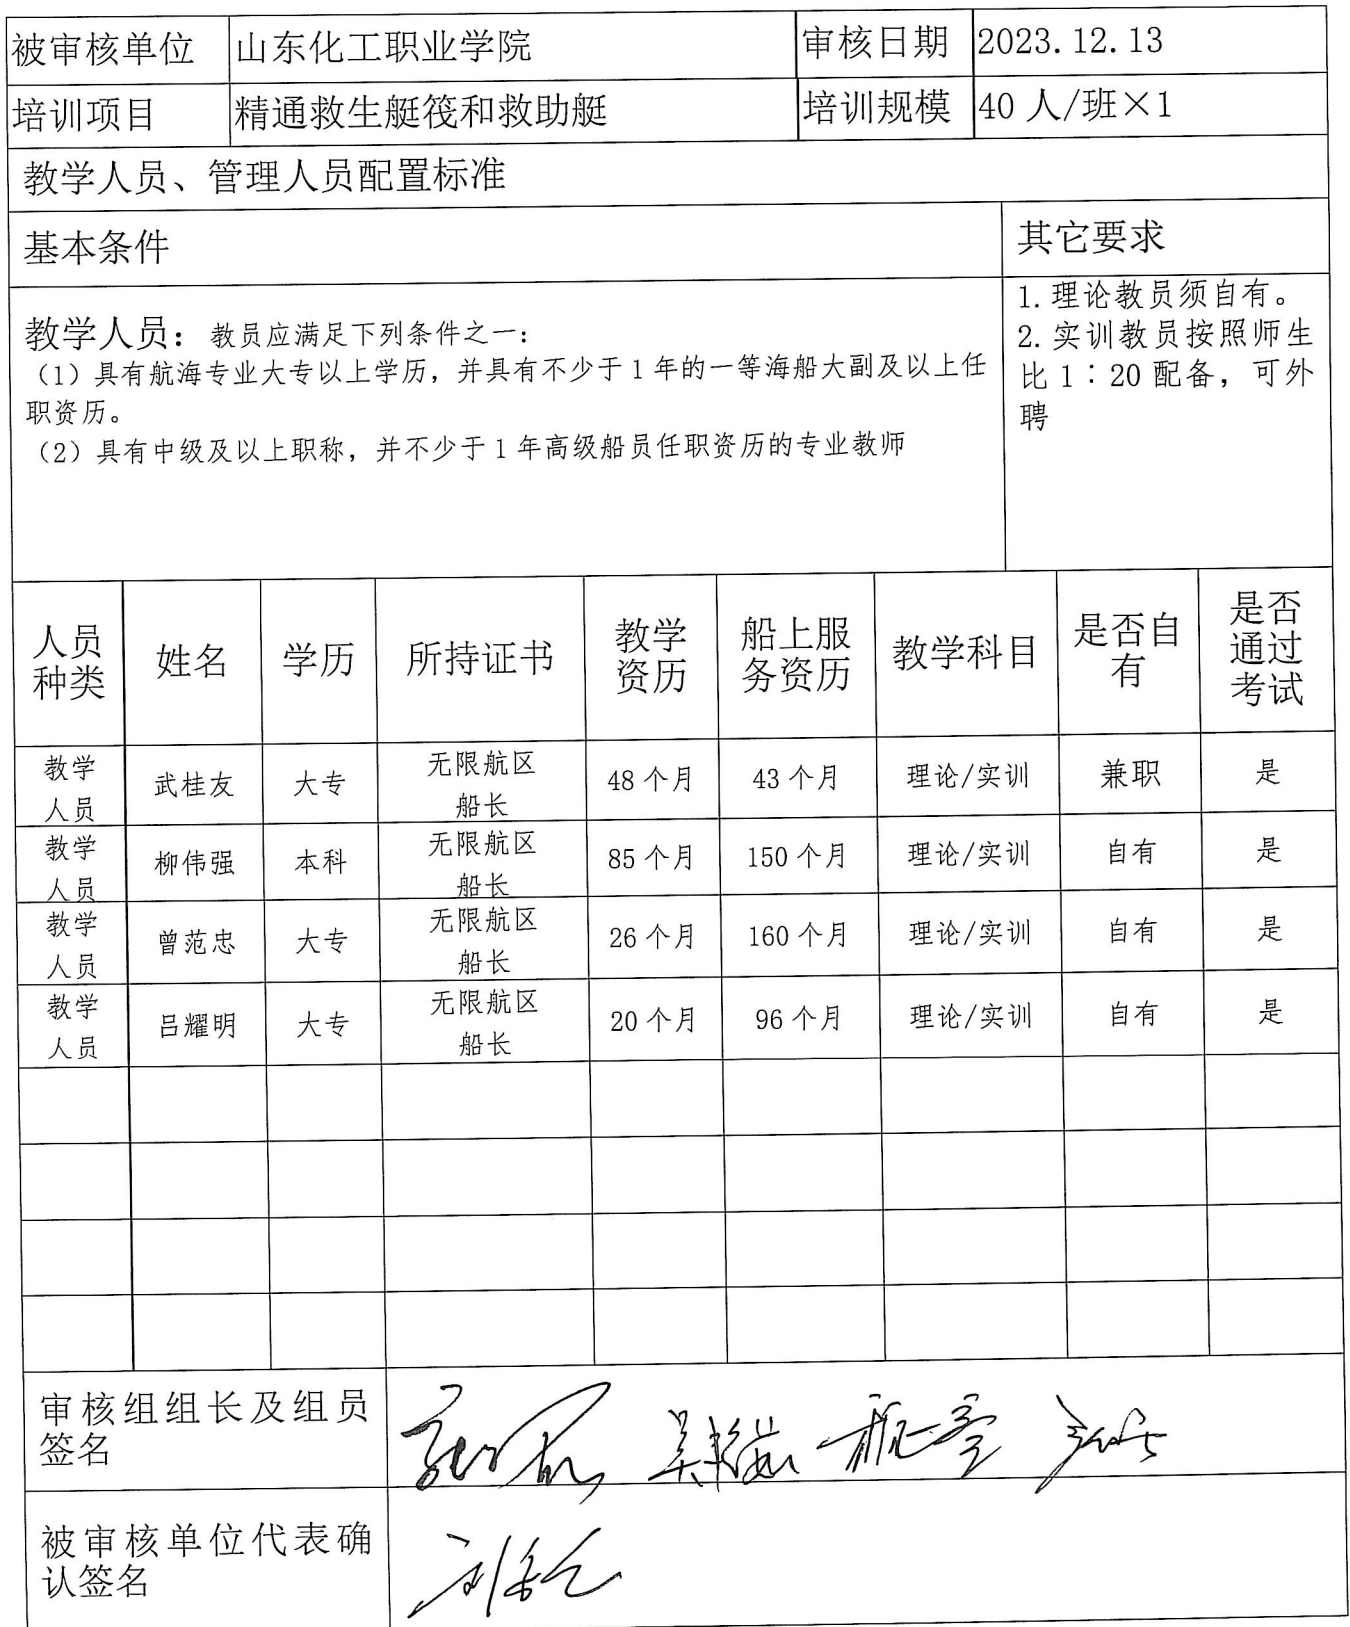 被审核单位 山东化工职业学院 审核日期 2023.12.13
培训项目 精通救生艇筏和救助艇 培训规模 40人/班×1
教学人员、管理人员配置标准
基本条件 其它要求
教学人员：教员应满足下列条件之一：
（1）具有航海专业大专以上学历，并具有不少于1年的一等海船大副及以上任
职资历。
（2）具有中级及以上职称，并不少于1年高级船员任职资历的专业教师
1.理论教员须自有。
2.实训教员按照师生
比1：20配备，可外
聘
人员种类 姓名 学历 所持证书 教学资历 船上服务资历 教学科目 是否自有 是否通过考试
教学人员 武桂友 大专 无限航区船长 48个月 43个月 理论/实训 兼职 是
教学人员 柳伟强 本科 无限航区船长 85个月 150个月 理论/实训 自有 是
教学人员 曾范忠 大专 无限航区船长 26个月 160个月 理论/实训 自有 是
教学人员 吕耀明 大专 无限航区船长 20个月 96个月 理论/实训 自有 是
审核组组长及组员
签名
被审核单位代表确
认签名